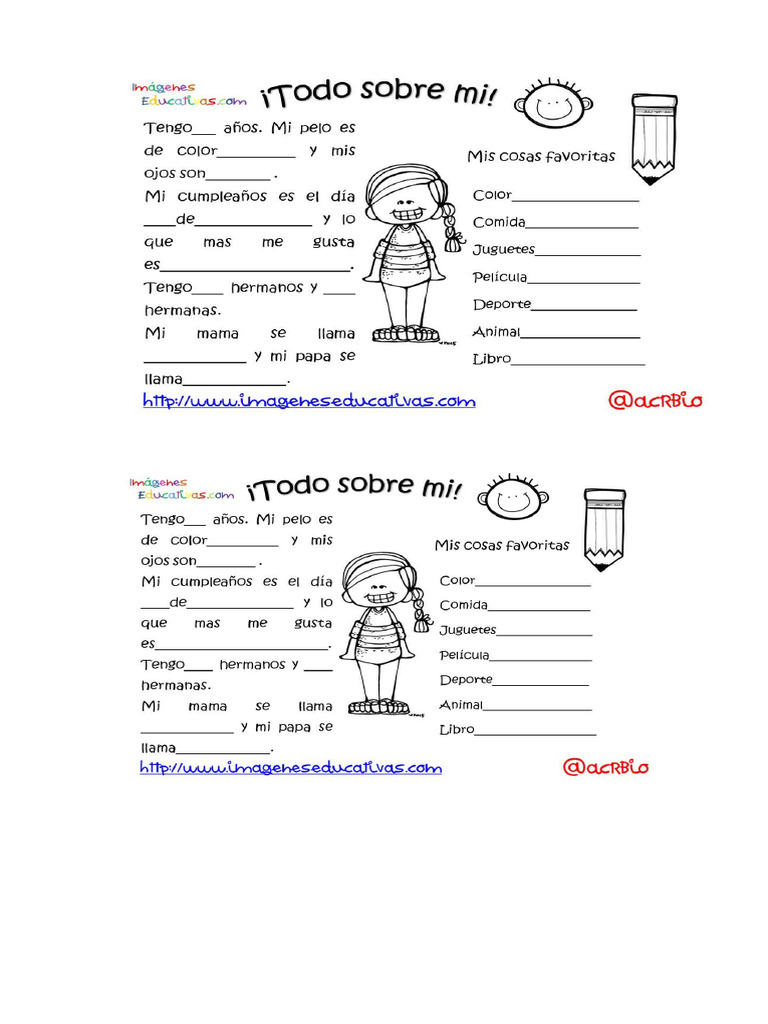 Imágenes
Educativas.com
¡Todo sobre mi!
Tengo___ años. Mi pelo es
de color__________ y mis
ojos son________ .
Mi cumpleaños es el día
____de______________ y lo
que mas me gusta
es________________________.
Tengo____ hermanos y ____
hermanas.
Mi mama se llama
_____________ y mi papa se
llama_____________.
Mis cosas favoritas
Color_________________
Comida_______________
Juguetes______________
Película_______________
Deporte______________
Animal_______________
Libro__________________
http://www.imageneseducativas.com
@acrbio
Imágenes
Educativas.com
¡Todo sobre mi!
Tengo___ años. Mi pelo es
de color__________ y mis
ojos son________ .
Mi cumpleaños es el día
____de______________ y lo
que mas me gusta
es________________________.
Tengo____ hermanos y ____
hermanas.
Mi mama se llama
_____________ y mi papa se
llama_____________.
Mis cosas favoritas
Color_________________
Comida_______________
Juguetes______________
Película_______________
Deporte______________
Animal_______________
Libro__________________
http://www.imageneseducativas.com
@acrbio